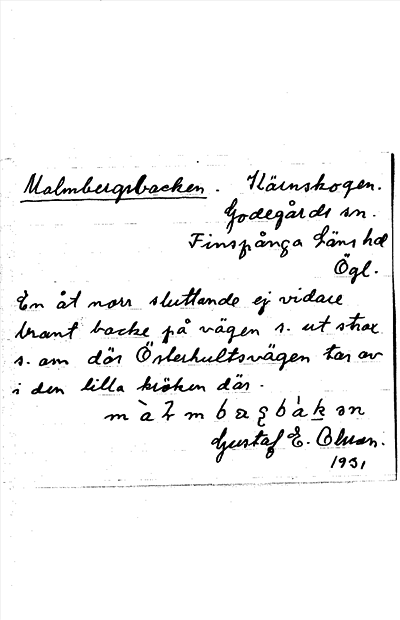 Malmbergsbacken. Kärnskogen.
Godegårds sn.
Finspånga läns hd
Ögl.
En åt norr sluttande ej vidare
brant backe på vägen s. ut strax
s. om där Österhultsvägen tar av
i den lilla kröken där.
Gustaf E.
1931